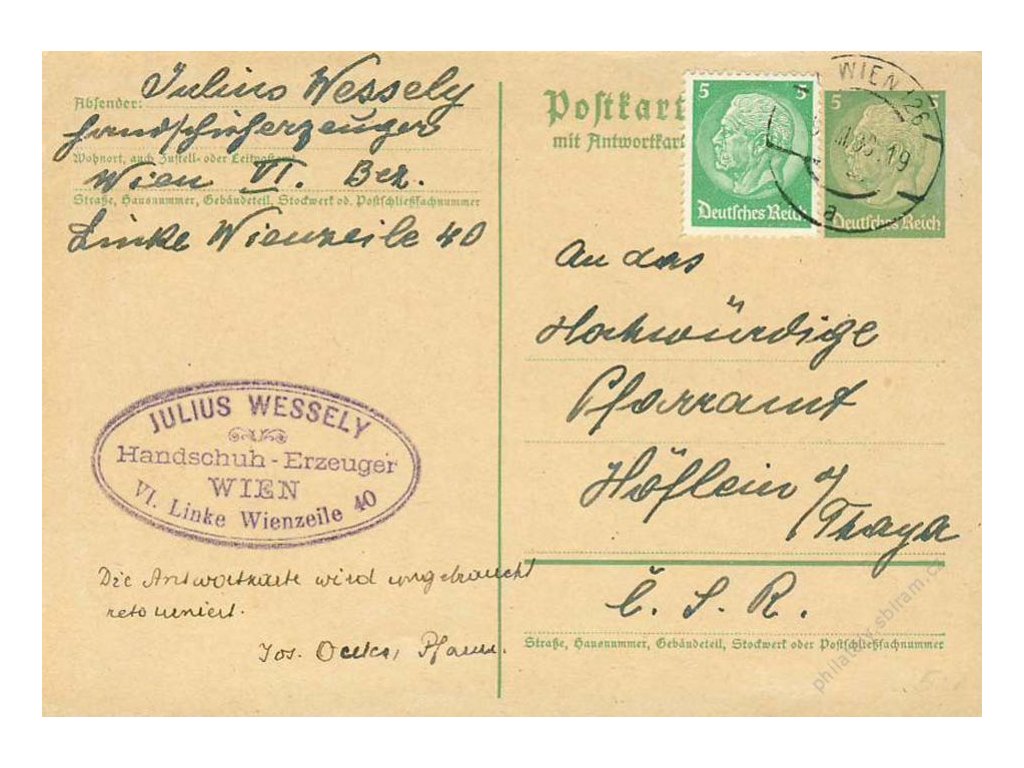 Julius Wessely
Absender:
Handschuherzeuger
Wohnort, auch Zustell- oder Leitpostamt
Wien VI. Bez.
Straße, Hausnummer, Gebäudeteil, Stockwerk od. Postschließfachnummer
Linke Wienzeile 40
JULIUS WESSELY
Handschuh-Erzeuger
WIEN
VI. Linke Wienzeile 40
Die Antwortkarte wird ungebraucht
retourniert.
Jos.
Postkart
mit Antwortkart
5 5
Deutsches Reich
5 5
Deutsches Reich
WIEN 26
19
a
An das
Hochwürdige
Pfarramt
Höflein a/
Thaya
Č. S. R.
Straße, Hausnummer, Gebäudeteil, Stockwerk oder Postschließfachnummer
philatelix.sbiram.cz